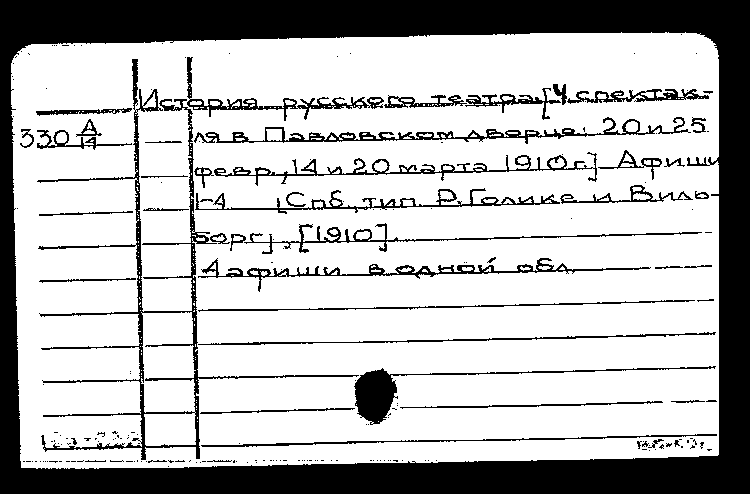 История русского театра. [4 спектак-
330 А/14 ля в Павловском дворце: 20 и 25
февр., 14 и 20 марта 1910 г.] Афиши
1-4 [Спб., тип. Р. Голике и Виль-
борг], [1910].
4 афиши в одной обл.